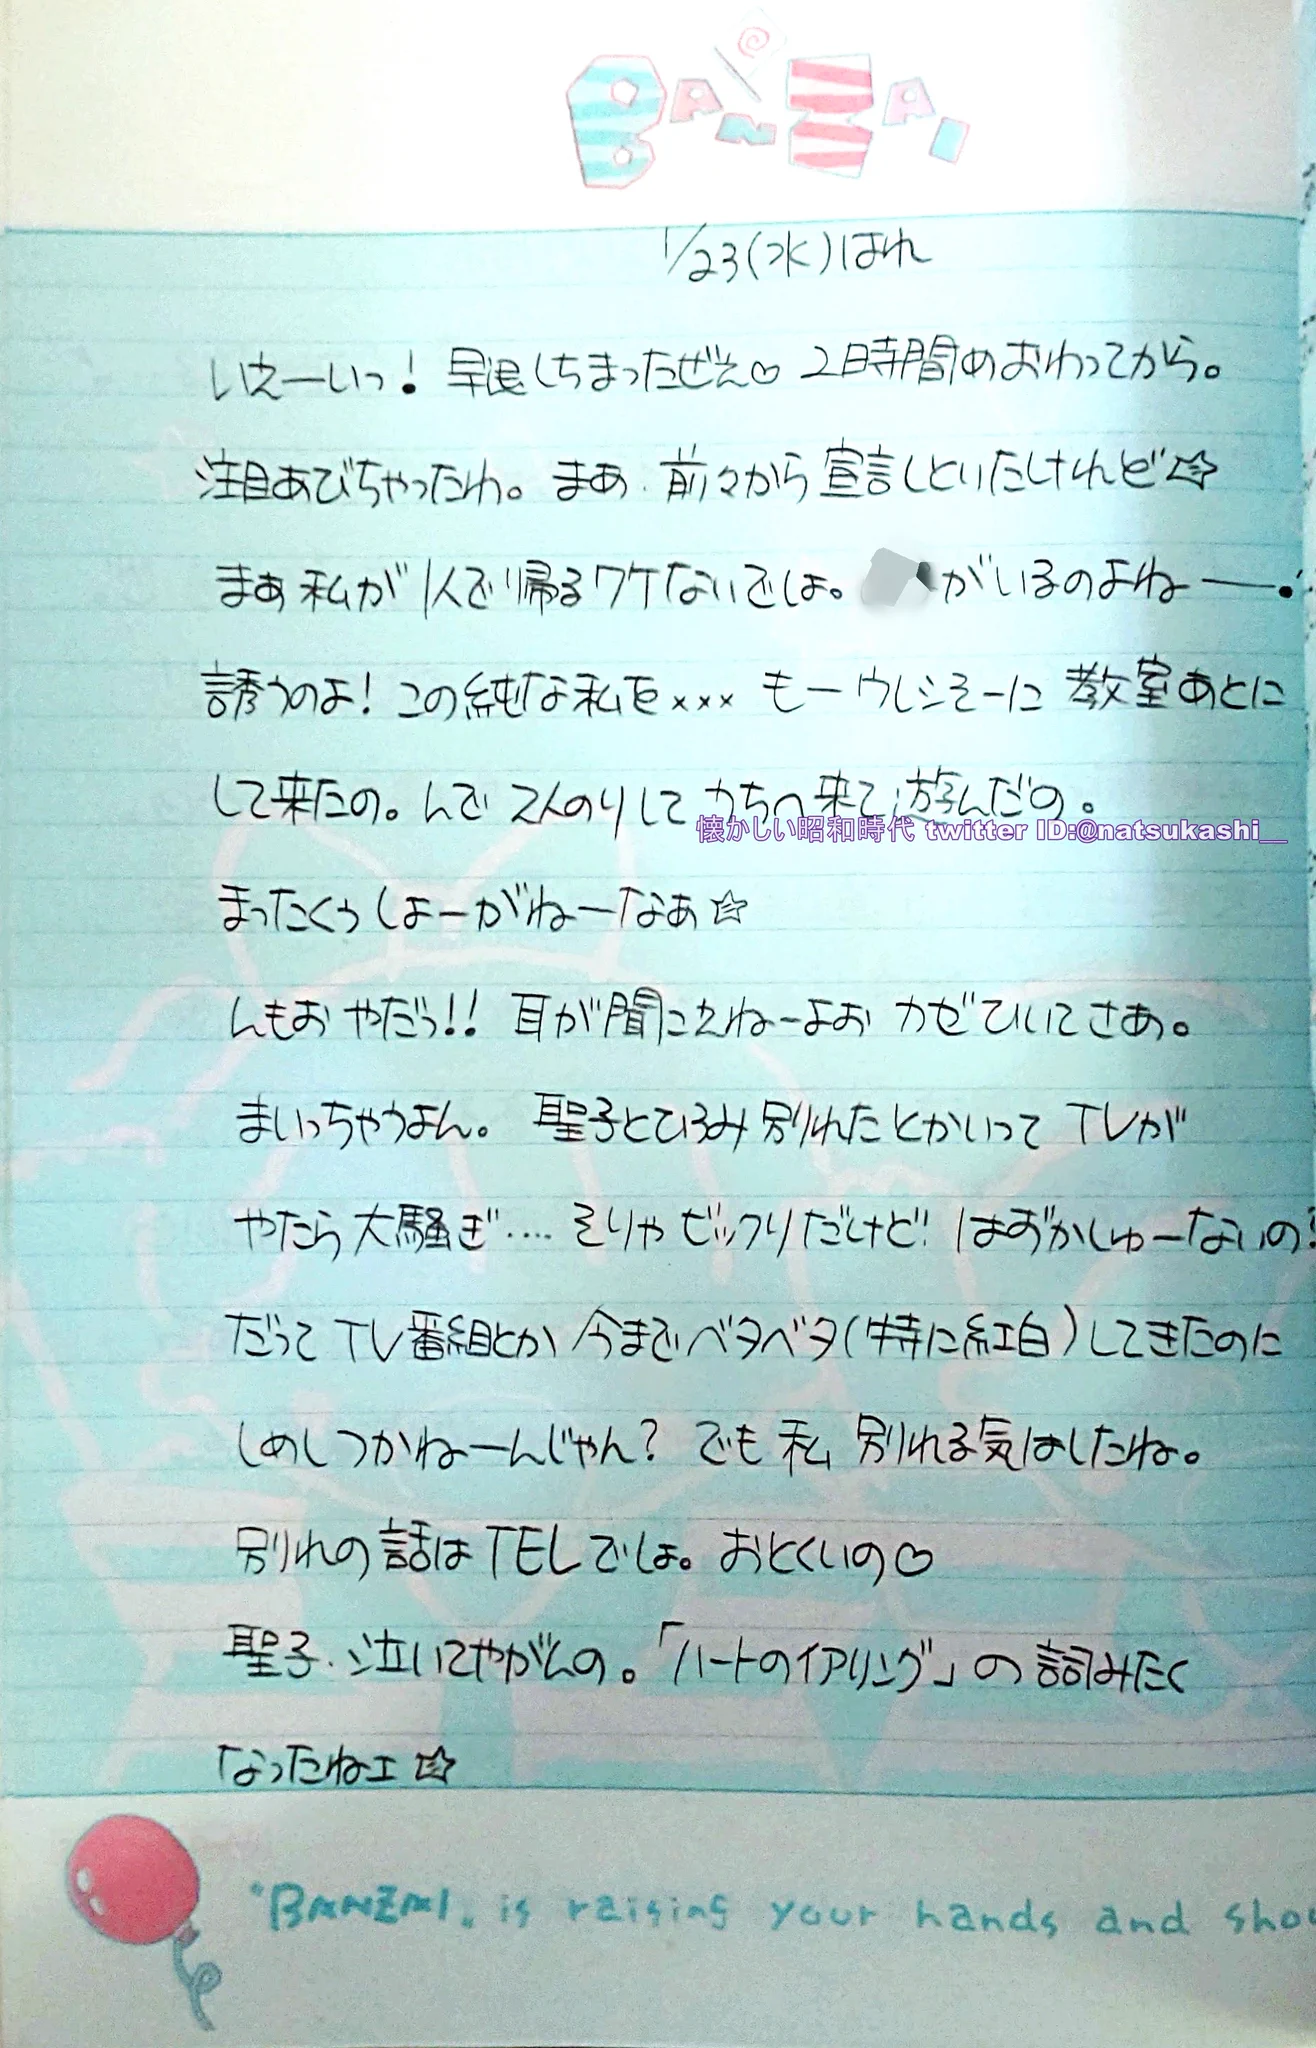 BANZAI
1/23(水)はれ
いえーいっ！早退しちまったぜえ♡ 2日時間めおわってから。
注目あびちゃったわ。まあ、前々から宣言しといたけれど☆
まぁ私が1人で帰るワケないでしょ。がいるのよねー―！
誘うのよ！この純な私を××× もーウレシそーに教室あとに
して来たの。んで2人のりしてカちへ来て遊んだの。
懐かしい昭和時代 twitter ID:@natsukashi__
まったくぅしょーがねーなぁ☆
んもお やだっ!! 耳が聞こえねーよお カゼひいてさあ。
まいっちゃうよん。 聖子とひろみ別れたとかいってTVが
やたら大騒ぎ‥‥そりゃビックリだけど！はずかしゅーないの？
だってTV番組とか今までベタベタ(特に紅白)してきたのに
しめしつかねーんじゃん？でも私 別れる気はしたね。
別れの話はTELでしょ。おとくいの♡
聖子、泣いてやがんの。「ハートのイアリング」の詞みたく
なったねェ☆
"BANZAI" is raising your hands and shou